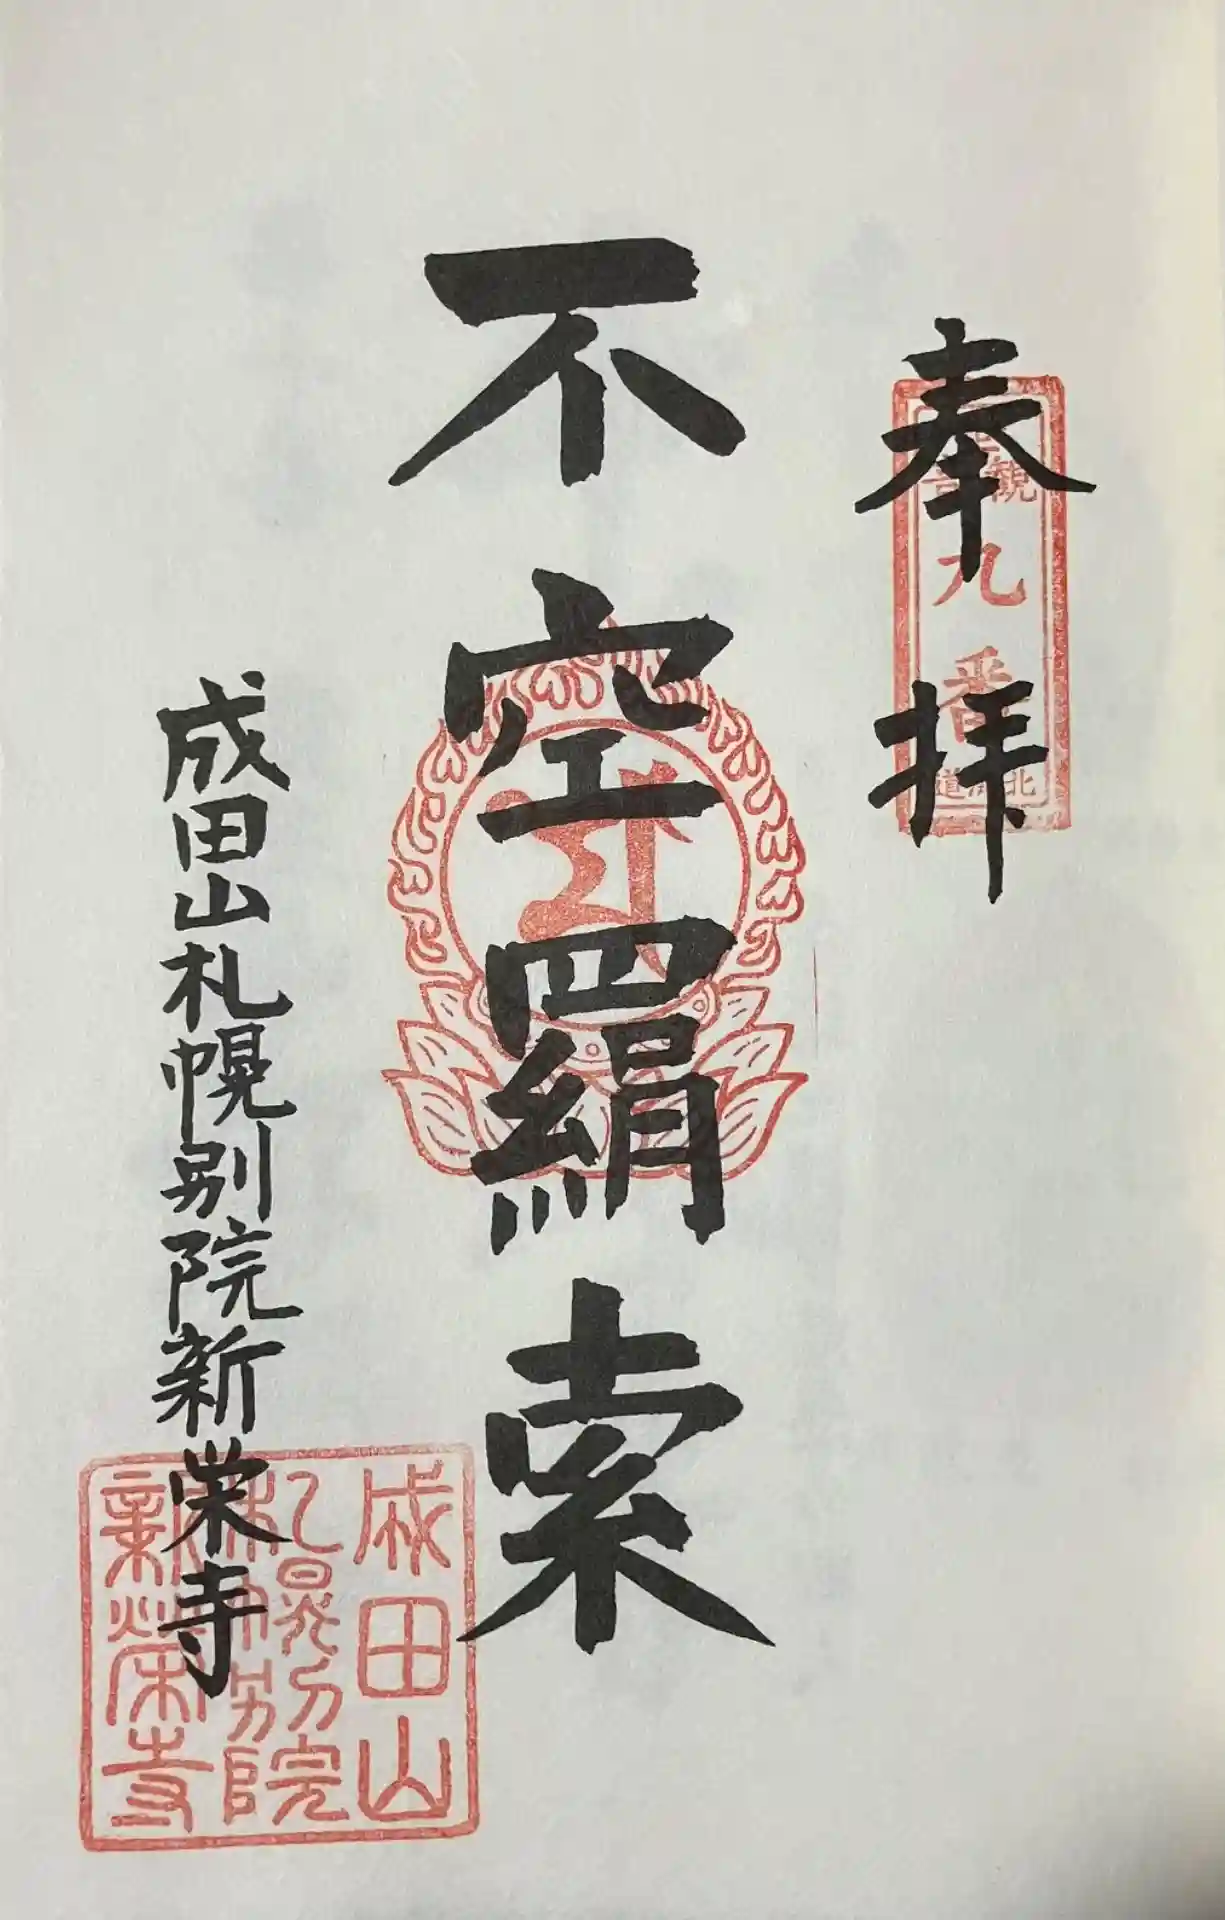 奉拝
観音
九番
北海道
不空羂索
成田山札幌別院新栄寺
成田山
札幌別院
新榮寺